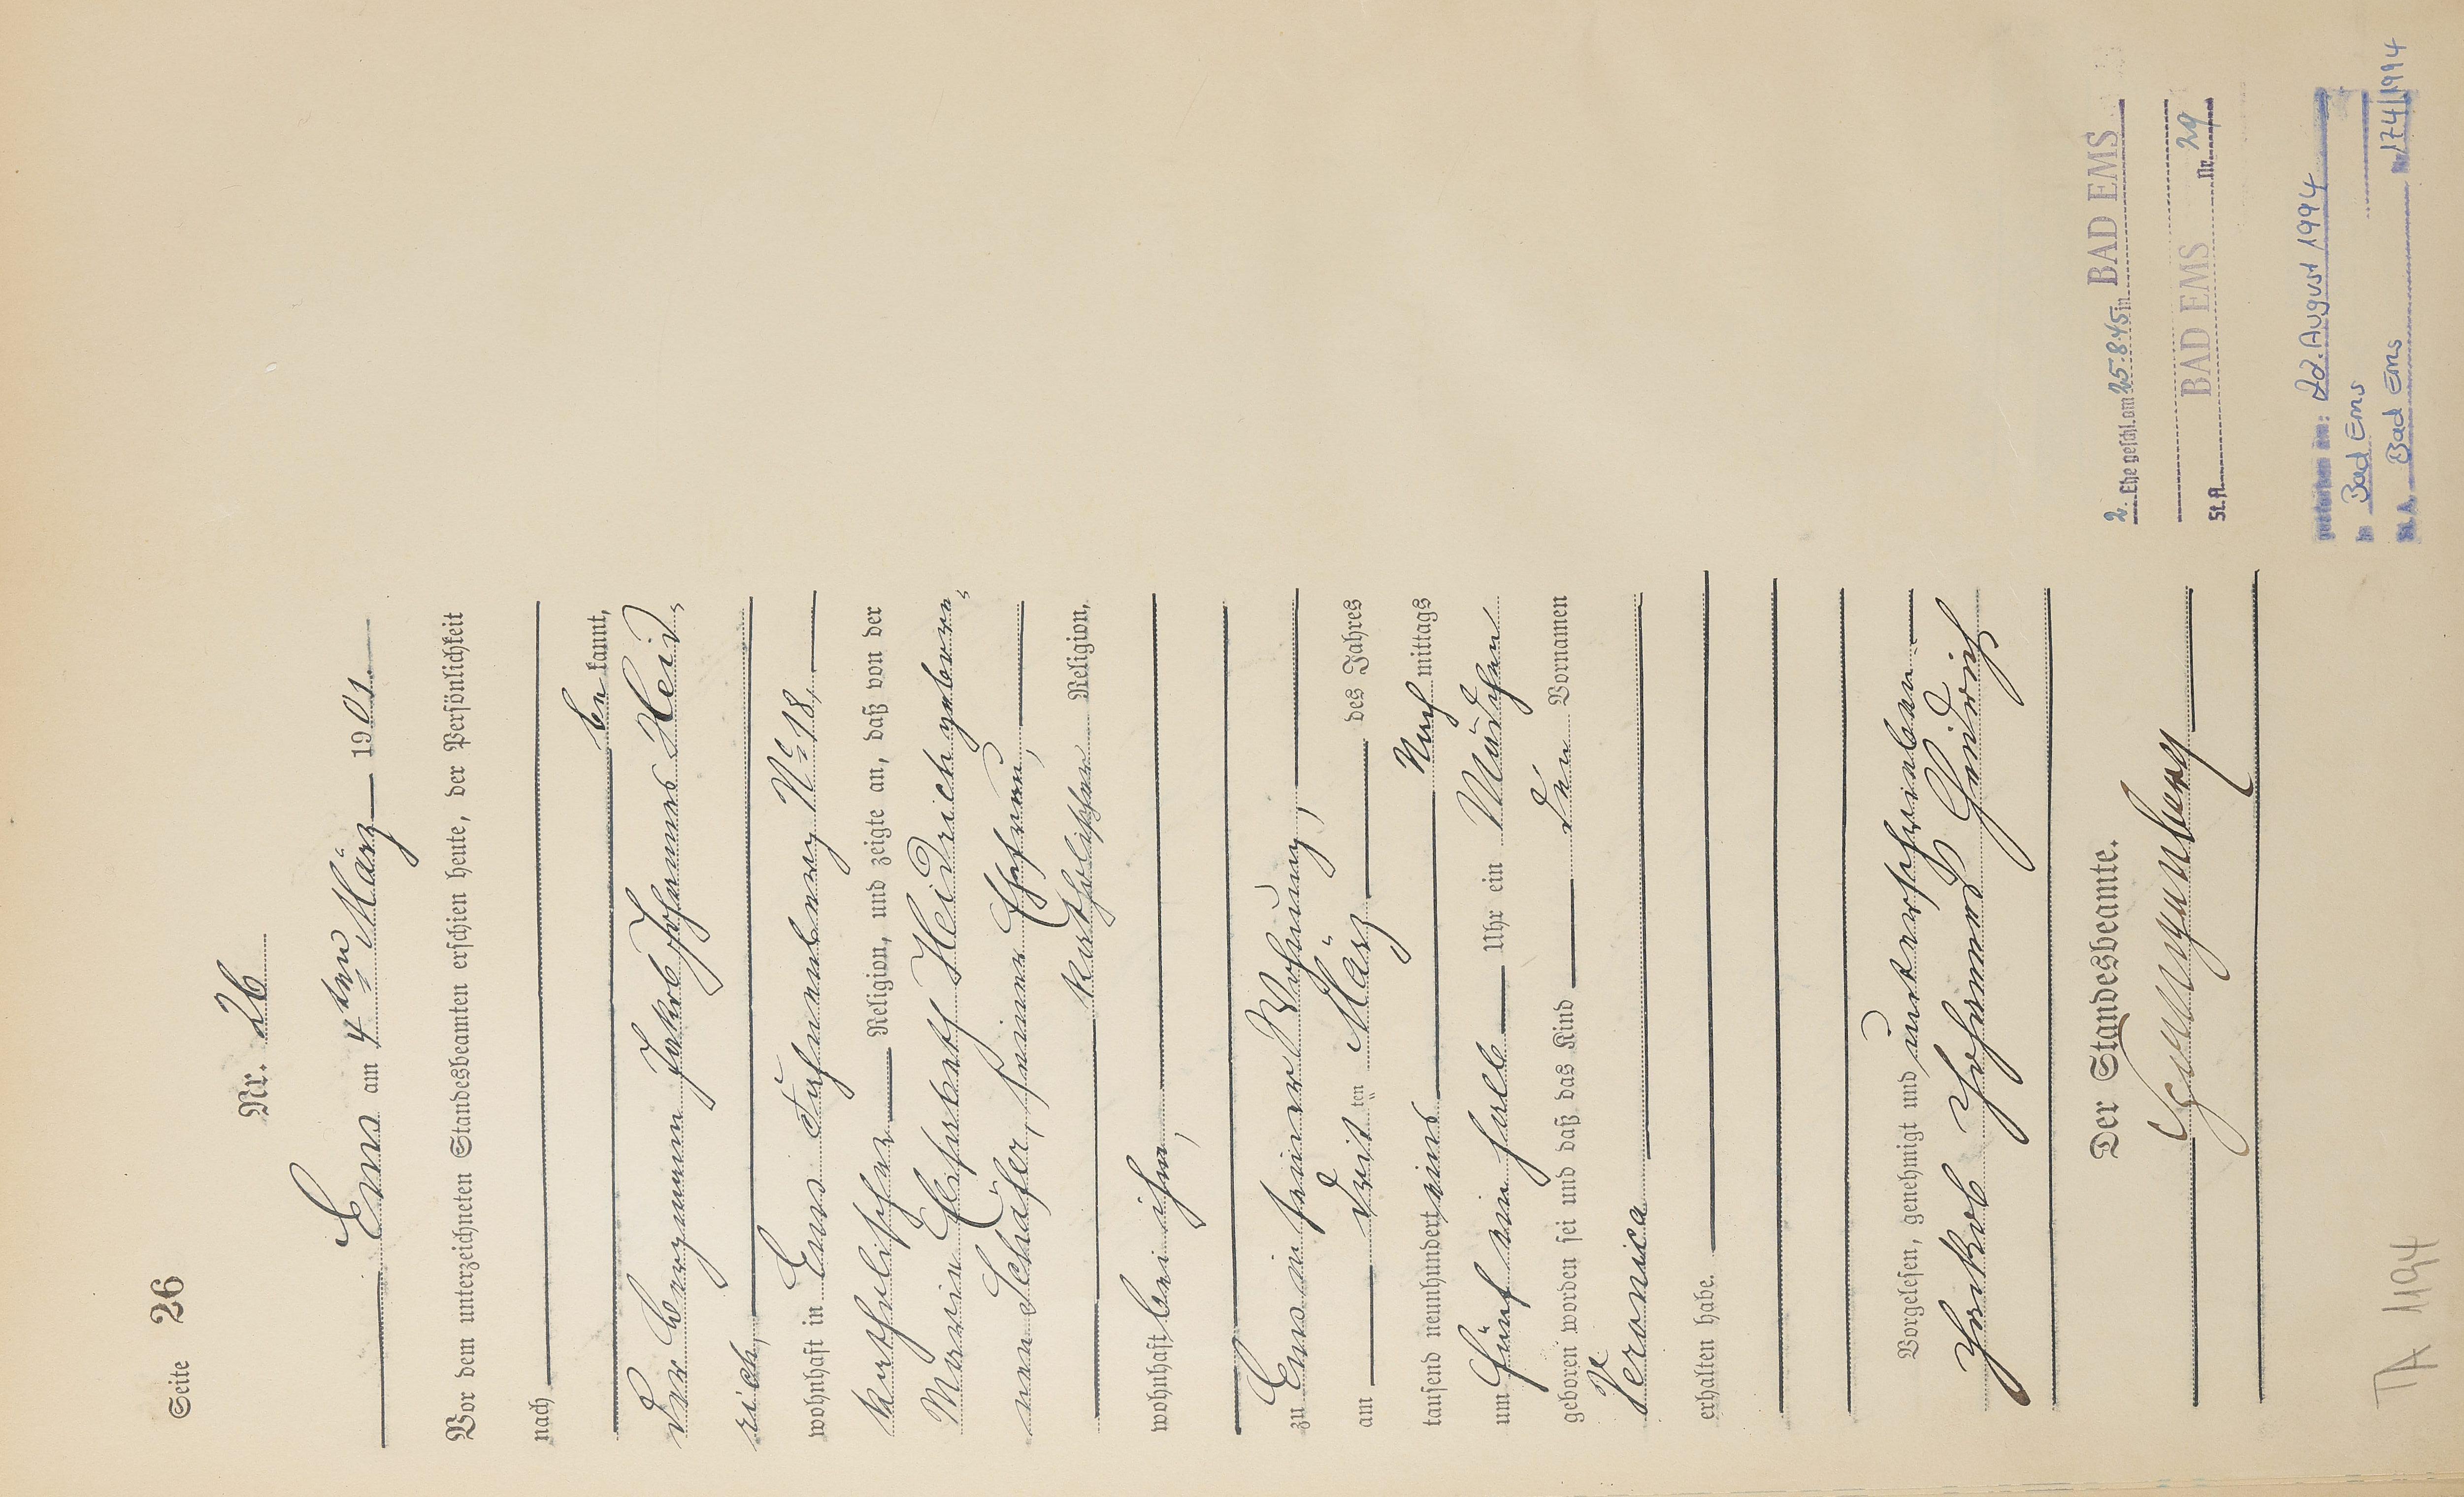 Seite 26
Nr. 26
Ems am 4ten März 1901.
Vor dem unterzeichneten Standesbeamten erschien heute, der Persönlichkeit
nach
bekannt,
der Bergmann Jakob Johannes Heid-
rich,
wohnhaft in Ems No 18,
katholischer Religion, und zeigte an, daß von der
Maria Elisabeth Heidrich gebore-
nen Schäfer, seiner Ehefrau,
katholischer Religion,
wohnhaft bei ihm,
zu Ems in seiner Wohnung,
am dritten März des Jahres
tausend neunhundert eins Nachmittags
um fünf ein halb Uhr ein Mädchen
geboren worden sei und daß das Kind den Vornamen
Veronica
erhalten habe.
Vorgelesen, genehmigt und unterschrieben
Jakob Johannes Heidrich
Der Standesbeamte.
2. Ehe geschl. am 25.8.45 in BAD EMS
St.A. BAD EMS Nr. 29
gestorben am: 22. August 1994
in Bad Ems
St. A. Bad Ems Nr. 174/1994
TA 1194